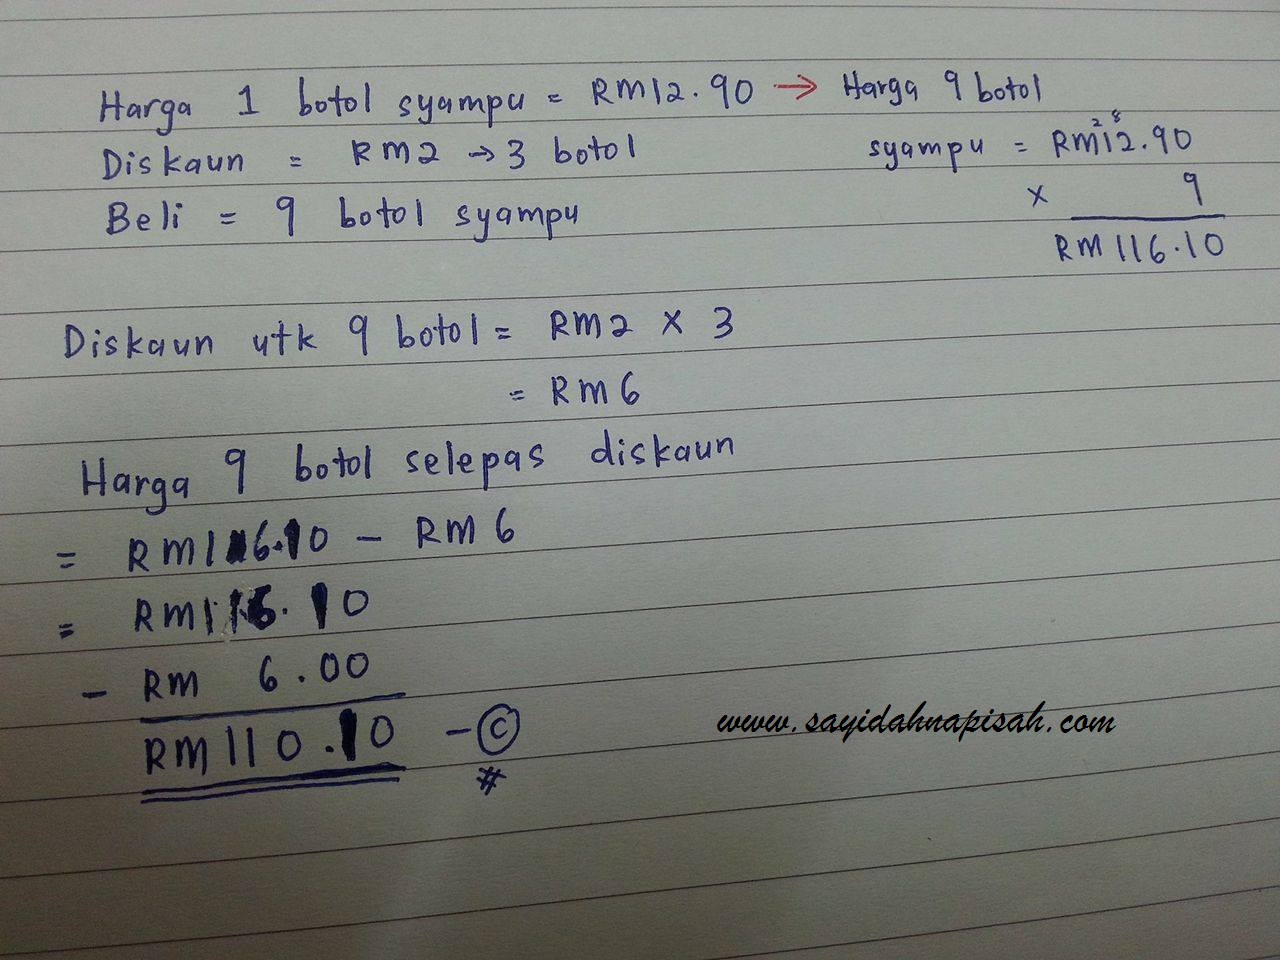 Harga 1 botol syampu = RM12.90 → Harga 9 botol
Diskaun = RM2 → 3 botol
syampu = RM12.90
2 8
Beli = 9 botol syampu
x 9
RM116.10
Diskaun utk 9 botol = RM2 x 3
= RM6
Harga 9 botol selepas diskaun
= RM116.10 - RM6
= RM116.10
- RM 6.00
RM110.10 - C
#
www.sayidahnapisah.com